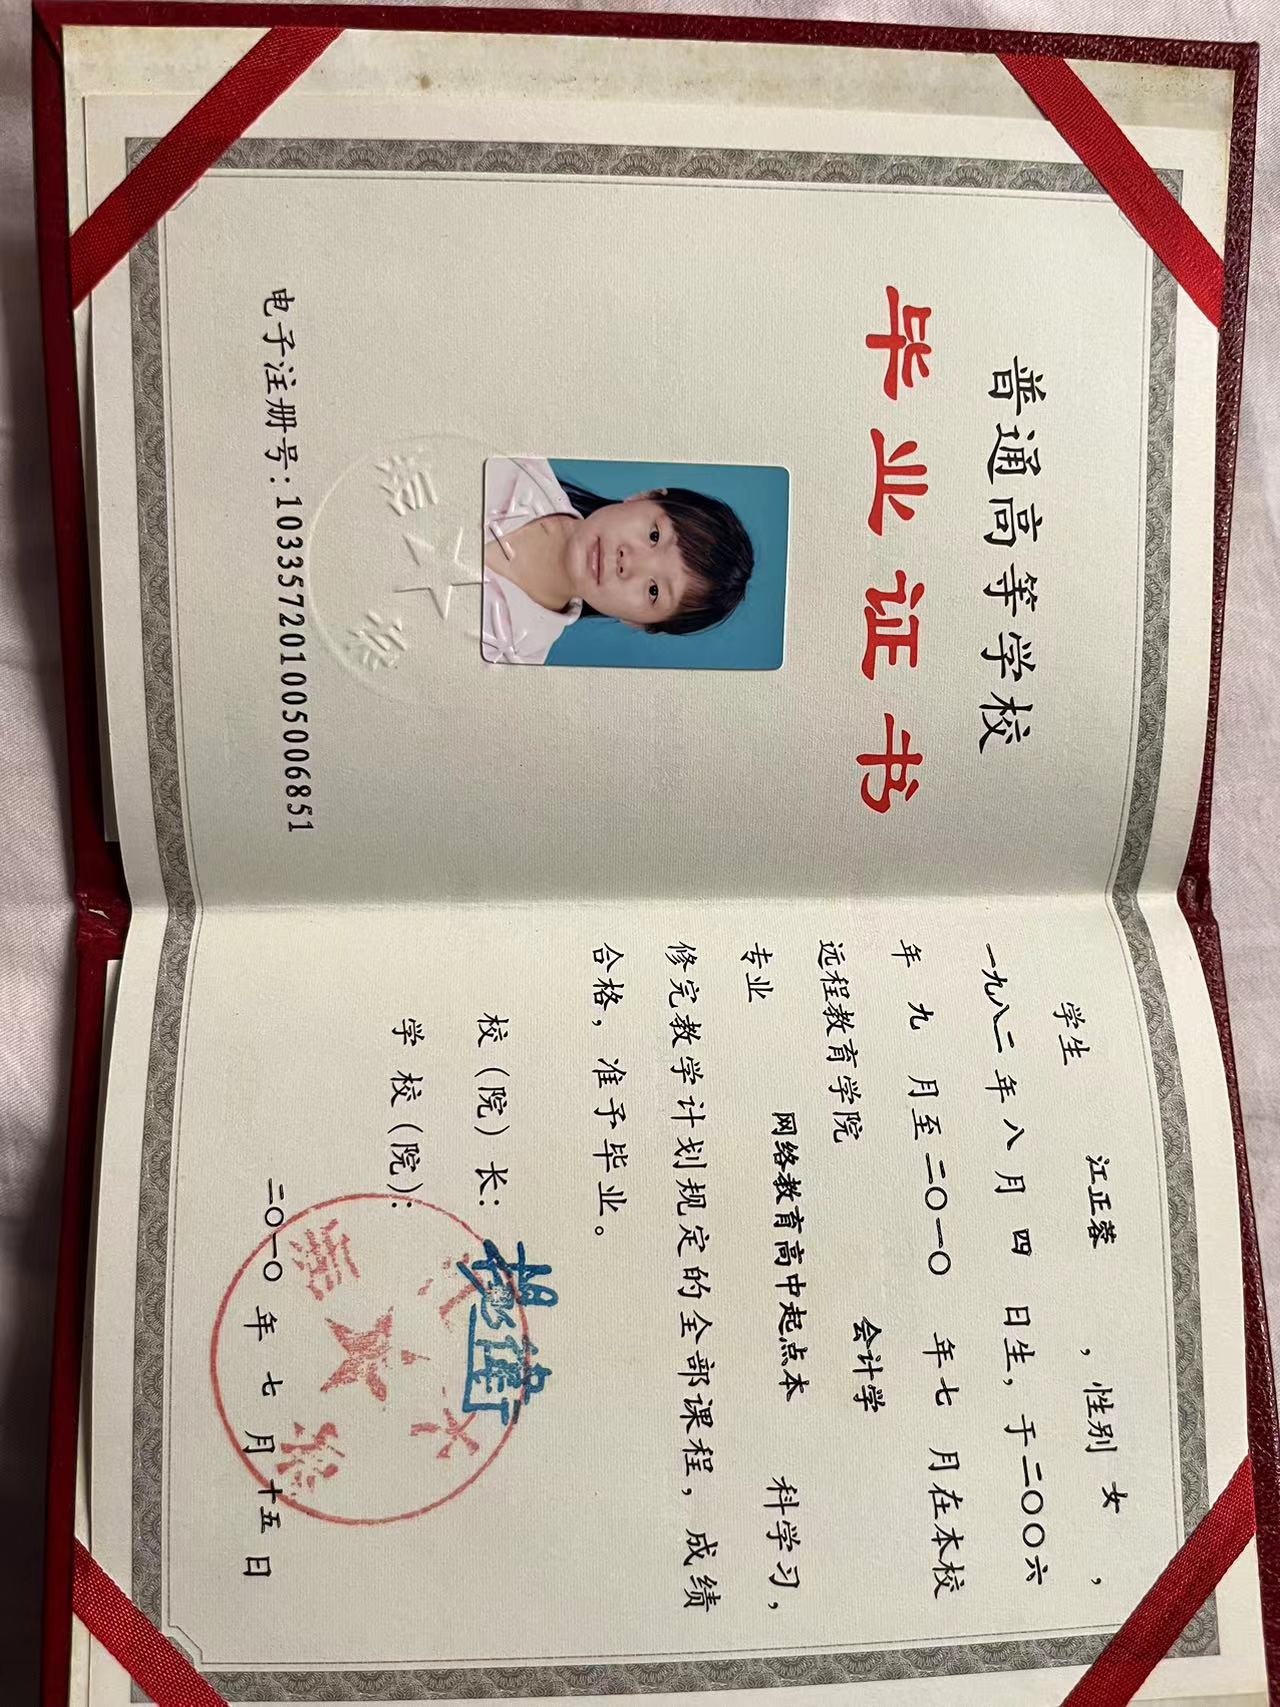 普通高等学校
毕业证书
电子注册号：103357201005006851
学生 江正蓉 ，性别 女 ，
一九八二 年 八 月 四 日生，于 二〇〇六
年 九 月至 二〇一〇 年 七 月在本校
远程教育学院 会计学
专业 网络教育高中起点本 科学习，
修完教学计划规定的全部课程，成绩
合格，准予毕业。
校（院）长：杨卫
学 校（院）：
二〇一〇 年 七 月 十五 日